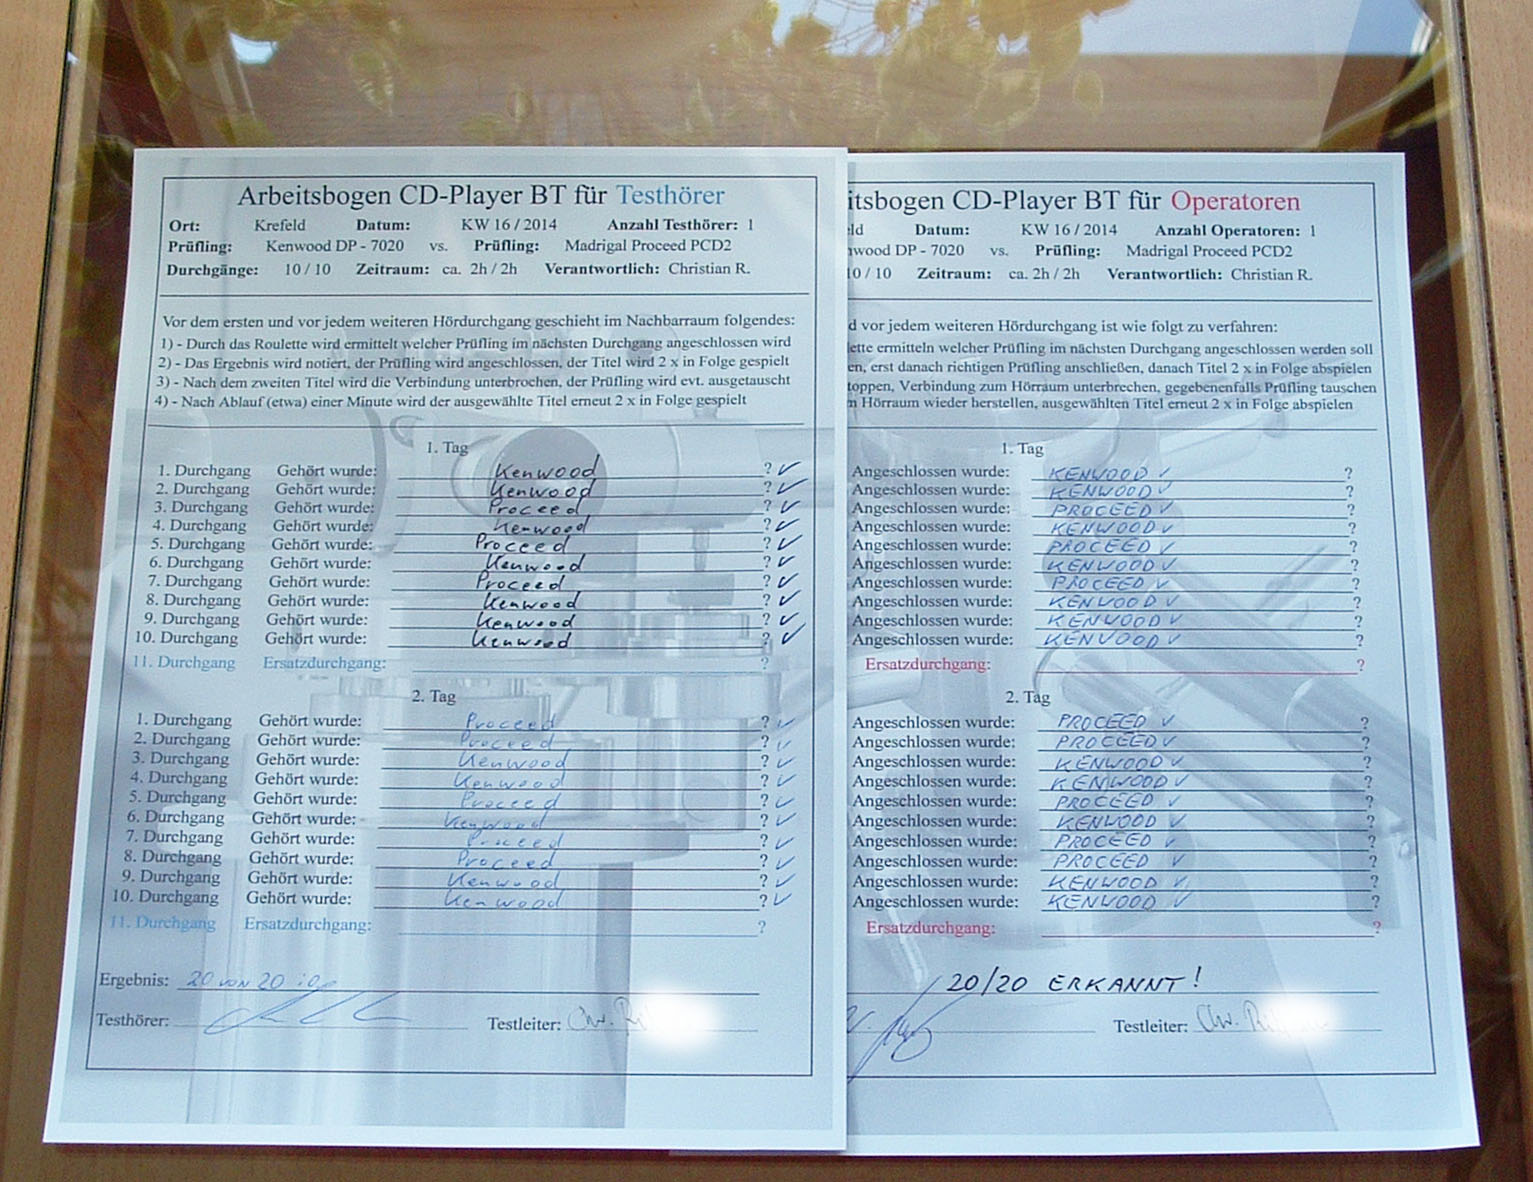 Arbeitsbogen CD-Player BT für Testhörer
Ort: Krefeld Datum: KW 16 / 2014 Anzahl Testhörer: 1
Prüfling: Kenwood DP - 7020 vs. Prüfling: Madrigal Proceed PCD2
Durchgänge: 10 / 10 Zeitraum: ca. 2h / 2h Verantwortlich: Christian R.
Vor dem ersten und vor jedem weiteren Hördurchgang geschieht im Nachbarraum folgendes:
1) - Durch das Roulette wird ermittelt welcher Prüfling im nächsten Durchgang angeschlossen wird
2) - Das Ergebnis wird notiert, der Prüfling wird angeschlossen, der Titel wird 2 x in Folge gespielt
3) - Nach dem zweiten Titel wird die Verbindung unterbrochen, der Prüfling wird evt. ausgetauscht
4) - Nach Ablauf (etwa) einer Minute wird der ausgewählte Titel erneut 2 x in Folge gespielt
1. Tag
1. Durchgang Gehört wurde: Kenwood ? ✓
2. Durchgang Gehört wurde: Kenwood ? ✓
3. Durchgang Gehört wurde: Proceed ? ✓
4. Durchgang Gehört wurde: Kenwood ? ✓
5. Durchgang Gehört wurde: Proceed ? ✓
6. Durchgang Gehört wurde: Kenwood ? ✓
7. Durchgang Gehört wurde: Proceed ? ✓
8. Durchgang Gehört wurde: Kenwood ? ✓
9. Durchgang Gehört wurde: Kenwood ? ✓
10. Durchgang Gehört wurde: Kenwood ? ✓
11. Durchgang Ersatzdurchgang: ?
2. Tag
1. Durchgang Gehört wurde: Proceed ? ✓
2. Durchgang Gehört wurde: Proceed ? ✓
3. Durchgang Gehört wurde: Kenwood ? ✓
4. Durchgang Gehört wurde: Kenwood ? ✓
5. Durchgang Gehört wurde: Proceed ? ✓
6. Durchgang Gehört wurde: Kenwood ? ✓
7. Durchgang Gehört wurde: Proceed ? ✓
8. Durchgang Gehört wurde: Proceed ? ✓
9. Durchgang Gehört wurde: Kenwood ? ✓
10. Durchgang Gehört wurde: Kenwood ? ✓
11. Durchgang Ersatzdurchgang: ?
Ergebnis: 20 von 20 i.o.
Testhörer: Testleiter: Chr.
itsbogen CD-Player BT für Operatoren
ld Datum: KW 16 / 2014 Anzahl Operatoren: 1
nwood DP - 7020 vs. Prüfling: Madrigal Proceed PCD2
10 / 10 Zeitraum: ca. 2h / 2h Verantwortlich: Christian R.
d vor jedem weiteren Hördurchgang ist wie folgt zu verfahren:
lette ermitteln welcher Prüfling im nächsten Durchgang angeschlossen werden soll
en, erst danach richtigen Prüfling anschließen, danach Titel 2 x in Folge abspielen
toppen, Verbindung zum Hörraum unterbrechen, gegebenenfalls Prüfling tauschen
n Hörraum wieder herstellen, ausgewählten Titel erneut 2 x in Folge abspielen
1. Tag
Angeschlossen wurde: KENWOOD ✓ ?
Angeschlossen wurde: KENWOOD ✓ ?
Angeschlossen wurde: PROCEED ✓ ?
Angeschlossen wurde: KENWOOD ✓ ?
Angeschlossen wurde: PROCEED ✓ ?
Angeschlossen wurde: KENWOOD ✓ ?
Angeschlossen wurde: PROCEED ✓ ?
Angeschlossen wurde: KENWOOD ✓ ?
Angeschlossen wurde: KENWOOD ✓ ?
Angeschlossen wurde: KENWOOD ✓ ?
Ersatzdurchgang: ?
2. Tag
Angeschlossen wurde: PROCEED ✓ ?
Angeschlossen wurde: PROCEED ✓ ?
Angeschlossen wurde: KENWOOD ✓ ?
Angeschlossen wurde: KENWOOD ✓ ?
Angeschlossen wurde: PROCEED ✓ ?
Angeschlossen wurde: KENWOOD ✓ ?
Angeschlossen wurde: PROCEED ✓ ?
Angeschlossen wurde: PROCEED ✓ ?
Angeschlossen wurde: KENWOOD ✓ ?
Angeschlossen wurde: KENWOOD ✓ ?
Ersatzdurchgang: ?
20/20 ERKANNT!
Testleiter: Chr.